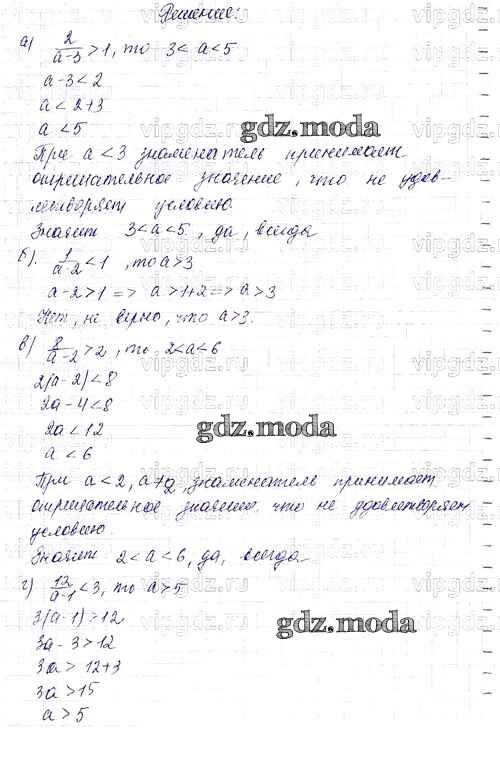 Решение:
а) 2/(a-3) > 1, то 3 < a < 5
a - 3 < 2
a < 2 + 3
a < 5
При a < 3 знаменатель принимает
отрицательное значение, что не удов-
летворяет условию.
Значит 3 < a < 5, да, всегда
б). 1/(a-2) < 1, то a > 3
a - 2 > 1 => a > 1 + 2 => a > 3
Нет, не верно, что a > 3.
в) 8/(a-2) > 2, то 2 < a < 6
2(a - 2) < 8
2a - 4 < 8
2a < 12
a < 6
При a < 2, a ≠ 2, знаменатель принимает
отрицательное значение, что не удовлетворяет
условию.
Значит 2 < a < 6, да, всегда
г) 12/(a-1) < 3, то a > 5
3(a - 1) > 12
3a - 3 > 12
3a > 12 + 3
3a > 15
a > 5
gdz.moda
gdz.moda
gdz.moda
vipgdz.ru